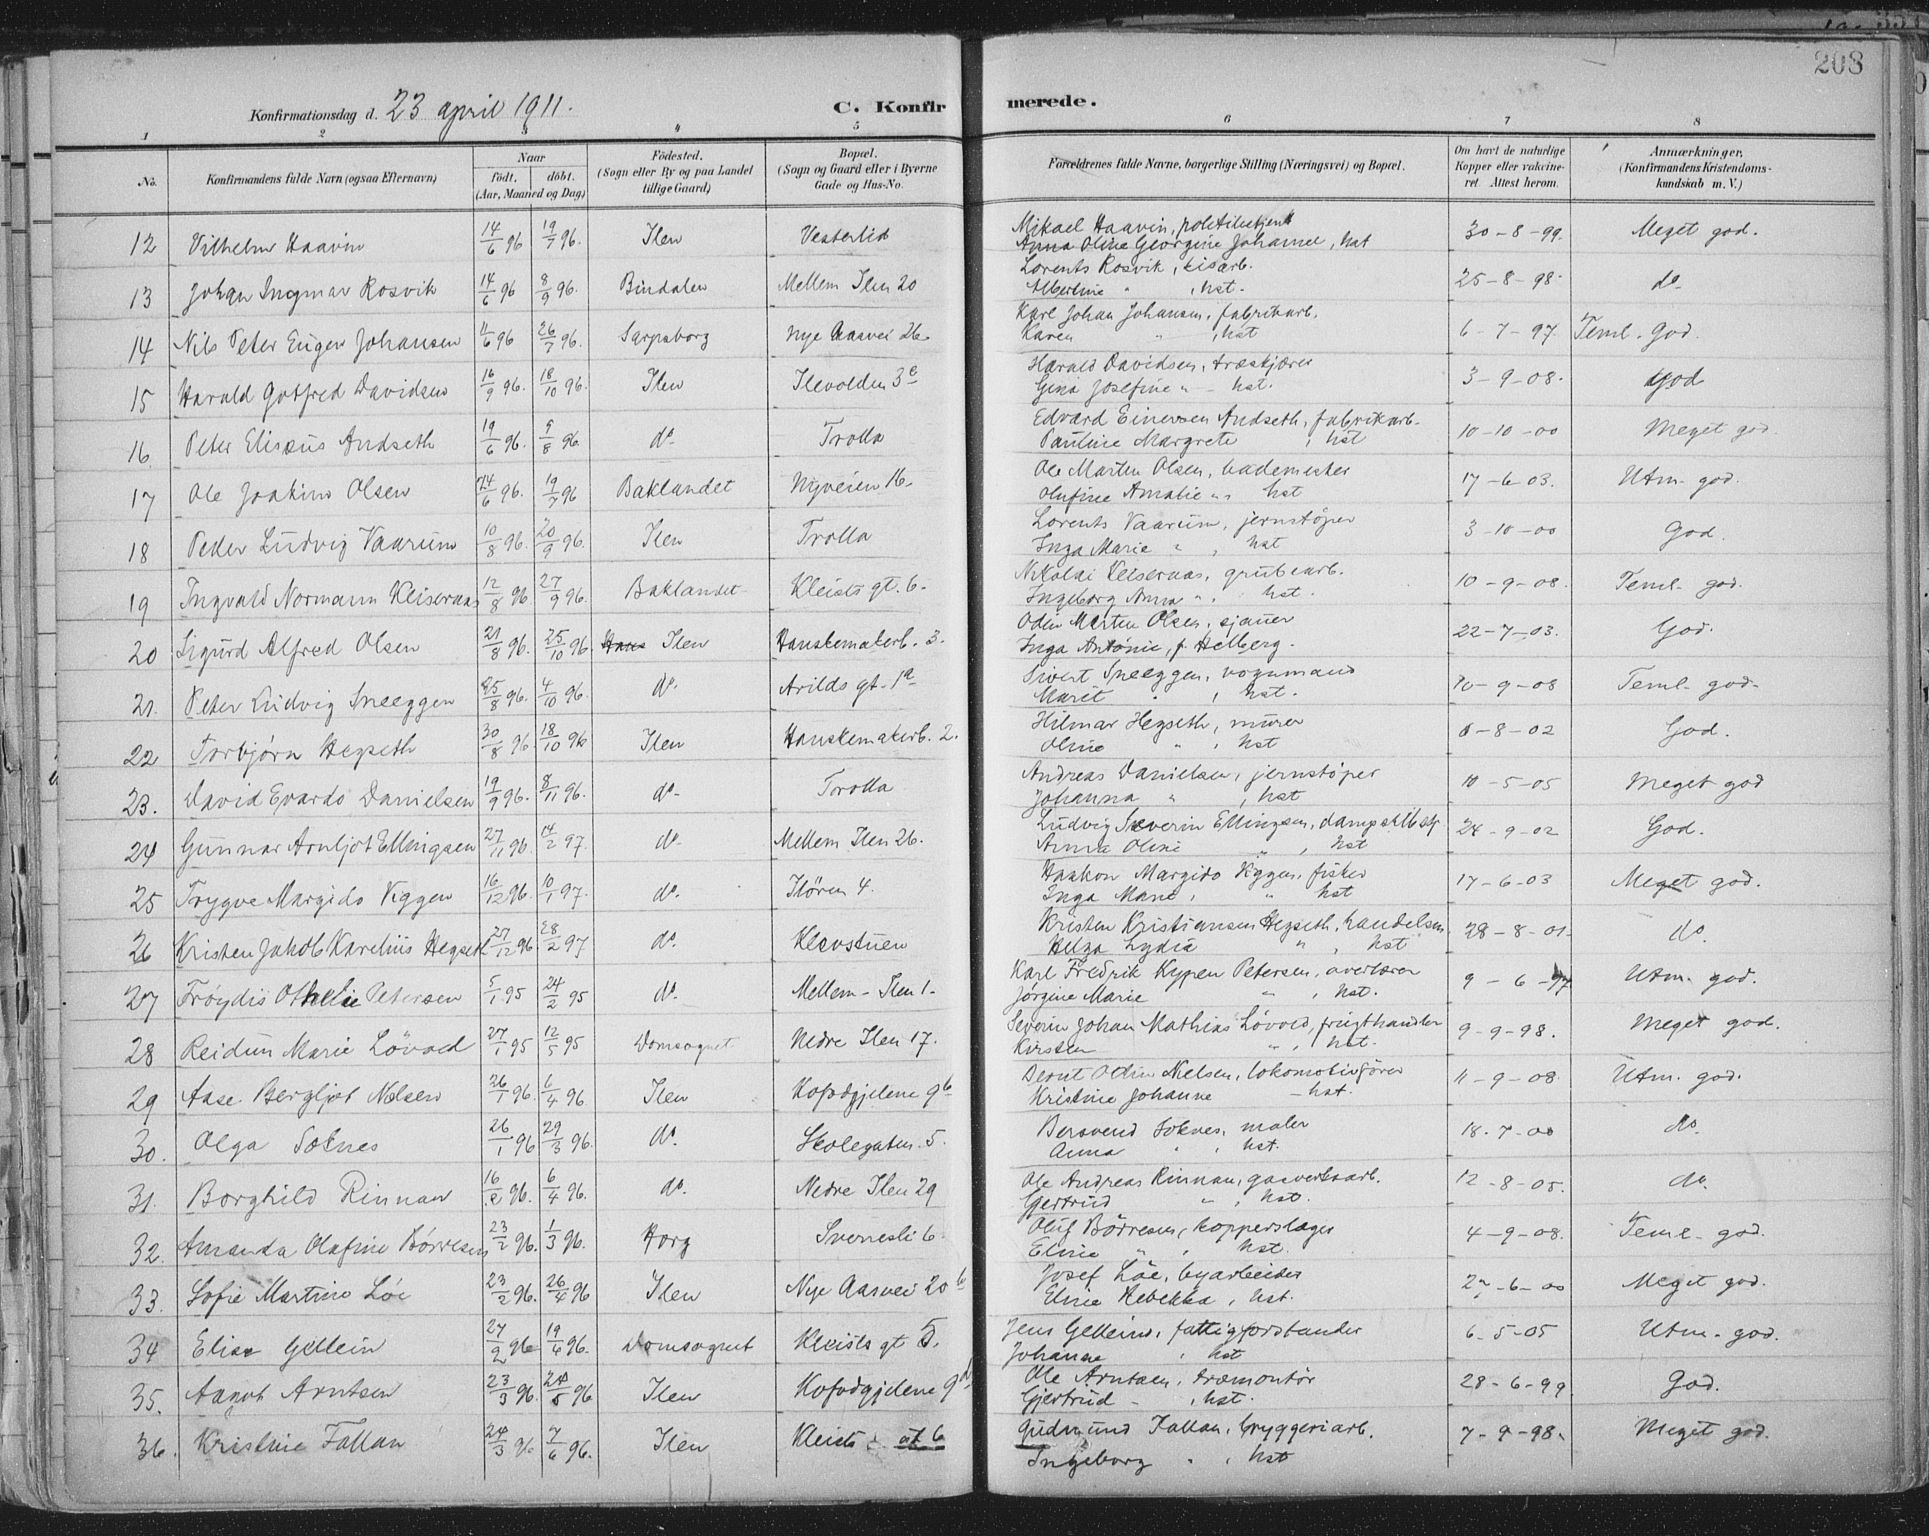 208
Konfirmationsdag d. 23 april 1911.
C. Konfirmerede.
1 2 3 4 5 6 7 8
No. Konfirmandens fulde Navn (ogsaa Efternavn) Naar født. døbt. (Aar, Maaned og Dag) Fødested. (Sogn eller By og paa Landet tillige Gaard) Bopæl. (Sogn og Gaard eller i Byerne Gade og Hus-No. Forældrenes fulde Navne, borgerlige Stilling (Næringsvei) og Bopæl. Om havt de naturlige Kopper eller vakcineret. Attest herom. Anmærkninger. (Konfirmandens Kristendomskundskab m. V.)
12 Vilhelm Haavin 14/6 96 19/7 96. Ilen Vesterlid Mikael Haavin, politibetjent 30-8-99. Meget god.
Anna Oline Georgine Johanne, hst
13 Johan Ingmar Rosvik 14/6 96 8/9 96. Bindalen Mellem Ilen 20 Lorents Rosvik, 25-8-98. do.
Albertine " , hst.
14 Nils Peter Eugen Johansen 4/6 96 26/7 96. Sarpsborg Nye Aasvei 26. Karl Johan Johansen, fabrikarb. 6-7-97. Teml. god.
Karen " , hst
15 Harald Gotfred Davidsen 16/9 96. 18/10 96. Ilen Ilevolden 3e Harald Davidsen, træskjærer 3-9-08. God
Gina Josefine " - hst.
16 Peter Elisæus Andseth 19/6 96. 9/8 96. do. Trolla Edvard Einersen Andseth, fabrikarb. 10-10-00 Meget god.
Pauline Margrete , hst
17 Ole Joakim Olsen 24/6 96. 19/7 96 Baklandet Nyveien 16. Ole Martin Olsen, bademester 17-6-03. Utm. god.
Olufine Amalie " hst
18 Peder Ludvig Vaarum 10/8 96. 20/9 96. Ilen Trolla Lorents Vaarum, jernstøper 3-10-00 God.
Inga Marie " , hst
19 Ingvald Normann Keisernaas 12/8 96. 27/9 96. Baklandet Kleists gt. 6. Nikolai Keisernaas, grubearb. 10-9-08. Teml. god.
Ingeborg Anna " . hst.
20 Sigurd Alfred Olsen 21/8 96. 25/10 96 Ilen Hanskemakerb. 3. Odin Martin Olsen, sjauer 22-7-03. God.
Inga Antonie, f. Helberg.
21. Peter Ludvig Sneeggen 25/8 96. 4/10 96. do. Arilds gt. 1a Sivert Sneeggen, vognmand 10-9-08 Teml. god.
Marit " , hst.
22 Torbjørn Hegseth 30/8 96 18/10 96 Ilen Hanskemakerb. 2. Hilmar Hegseth, murer 6-8-02 God.
Oline " , hst
23. David Evardo Danielsen 19/9 96. 8/11 96. do. Trolla Andreas Danielsen, jernstøper 10-5-05 Meget god
Johanna " , hst
24 Gunnar Arnljot Ellingsen 27/11 96. 14/2 97. do. Mellem Ilen 26. Ludvig Severin Ellingsen, 24-9-02 God.
Anna Oline " , hst
25 Trygve Margido Viggen 16/12 96. 10/1 97. do. Ilören 4. Haakon Margido Viggen, fisker 17-6-03 Meget god.
Inga Marie, " hst
26 Kristen Jakob Karelius Hegseth 27/12 96 28/2 97 do. Kleivstuen Kristen Kristiansen Hegseth, handelsm. 28-8-01. do.
Helga Lydia " , hst
27 Frøydis Othelie Petersen 5/1 95 24/2 95 do. Mellem-Ilen 1. Karl Fredrik Kypen Petersen, overlærer 9-6-97 Utm. god.
Jørgine Marie " , hst.
28 Reidun Marie Lövold 27/1 95 12/5 95 Domsognet Nedre Ilen 17. Severin Johan Mathias Lövold, frugthandler 9-9-98. Meget god.
Kirsten " , hst.
29 Aase Bergljot Nelsen 26/1 96. 6/4 96. Ilen Hospdgjelene 9b Bernt Odin Nielsen, lokomotivfører 11-9-08. Utm. god.
Kristine Johanne - hst.
30. Olga Soknes 26/1 96 29/3 96. do. Skolegaten 5. Bersvend Soknes, maler 18-7-00 do.
Anna " , hst.
31. Borghild Rinnan 16/2 96. 6/4 96. do. Nedre Ilen 29 Ole Andreas Rinnan, gasverksarb. 12-8-05. do.
Gjertrud " , hst.
32. Amanda Olafine Börresen 23/2 96. 1/3 96. Horg Sverresli 6. Oluf Börresen, kopperslager 4-9-08. Teml. god.
Eline " , hst.
33. Sofie Martine Löe 23/2 96. 26/4 96 Ilen Nye Aasvei 20b Josef Löe, byarbeider -6-00 Meget god.
Eline Rebekka, hst.
34 Elise Gellein 27/2 96 19/4 96. Domsognet Kleists gt 5. Jens Gellein, fattigforstander 6-5-05 Utm. god.
Johanne , hst
35. Aagot Arntsen 23/3 96. 24/5 96 Ilen Ole Arntsen, træmontör 28-6-99. God.
Gjertrud - , hst.
36. Kristine Fallan 24/3 96 7/6 96. Ilen Kleists gt 6 Gudmund Fallan, bryggeriarb. 7-9-98. Meget god.
Ingeborg " , hst